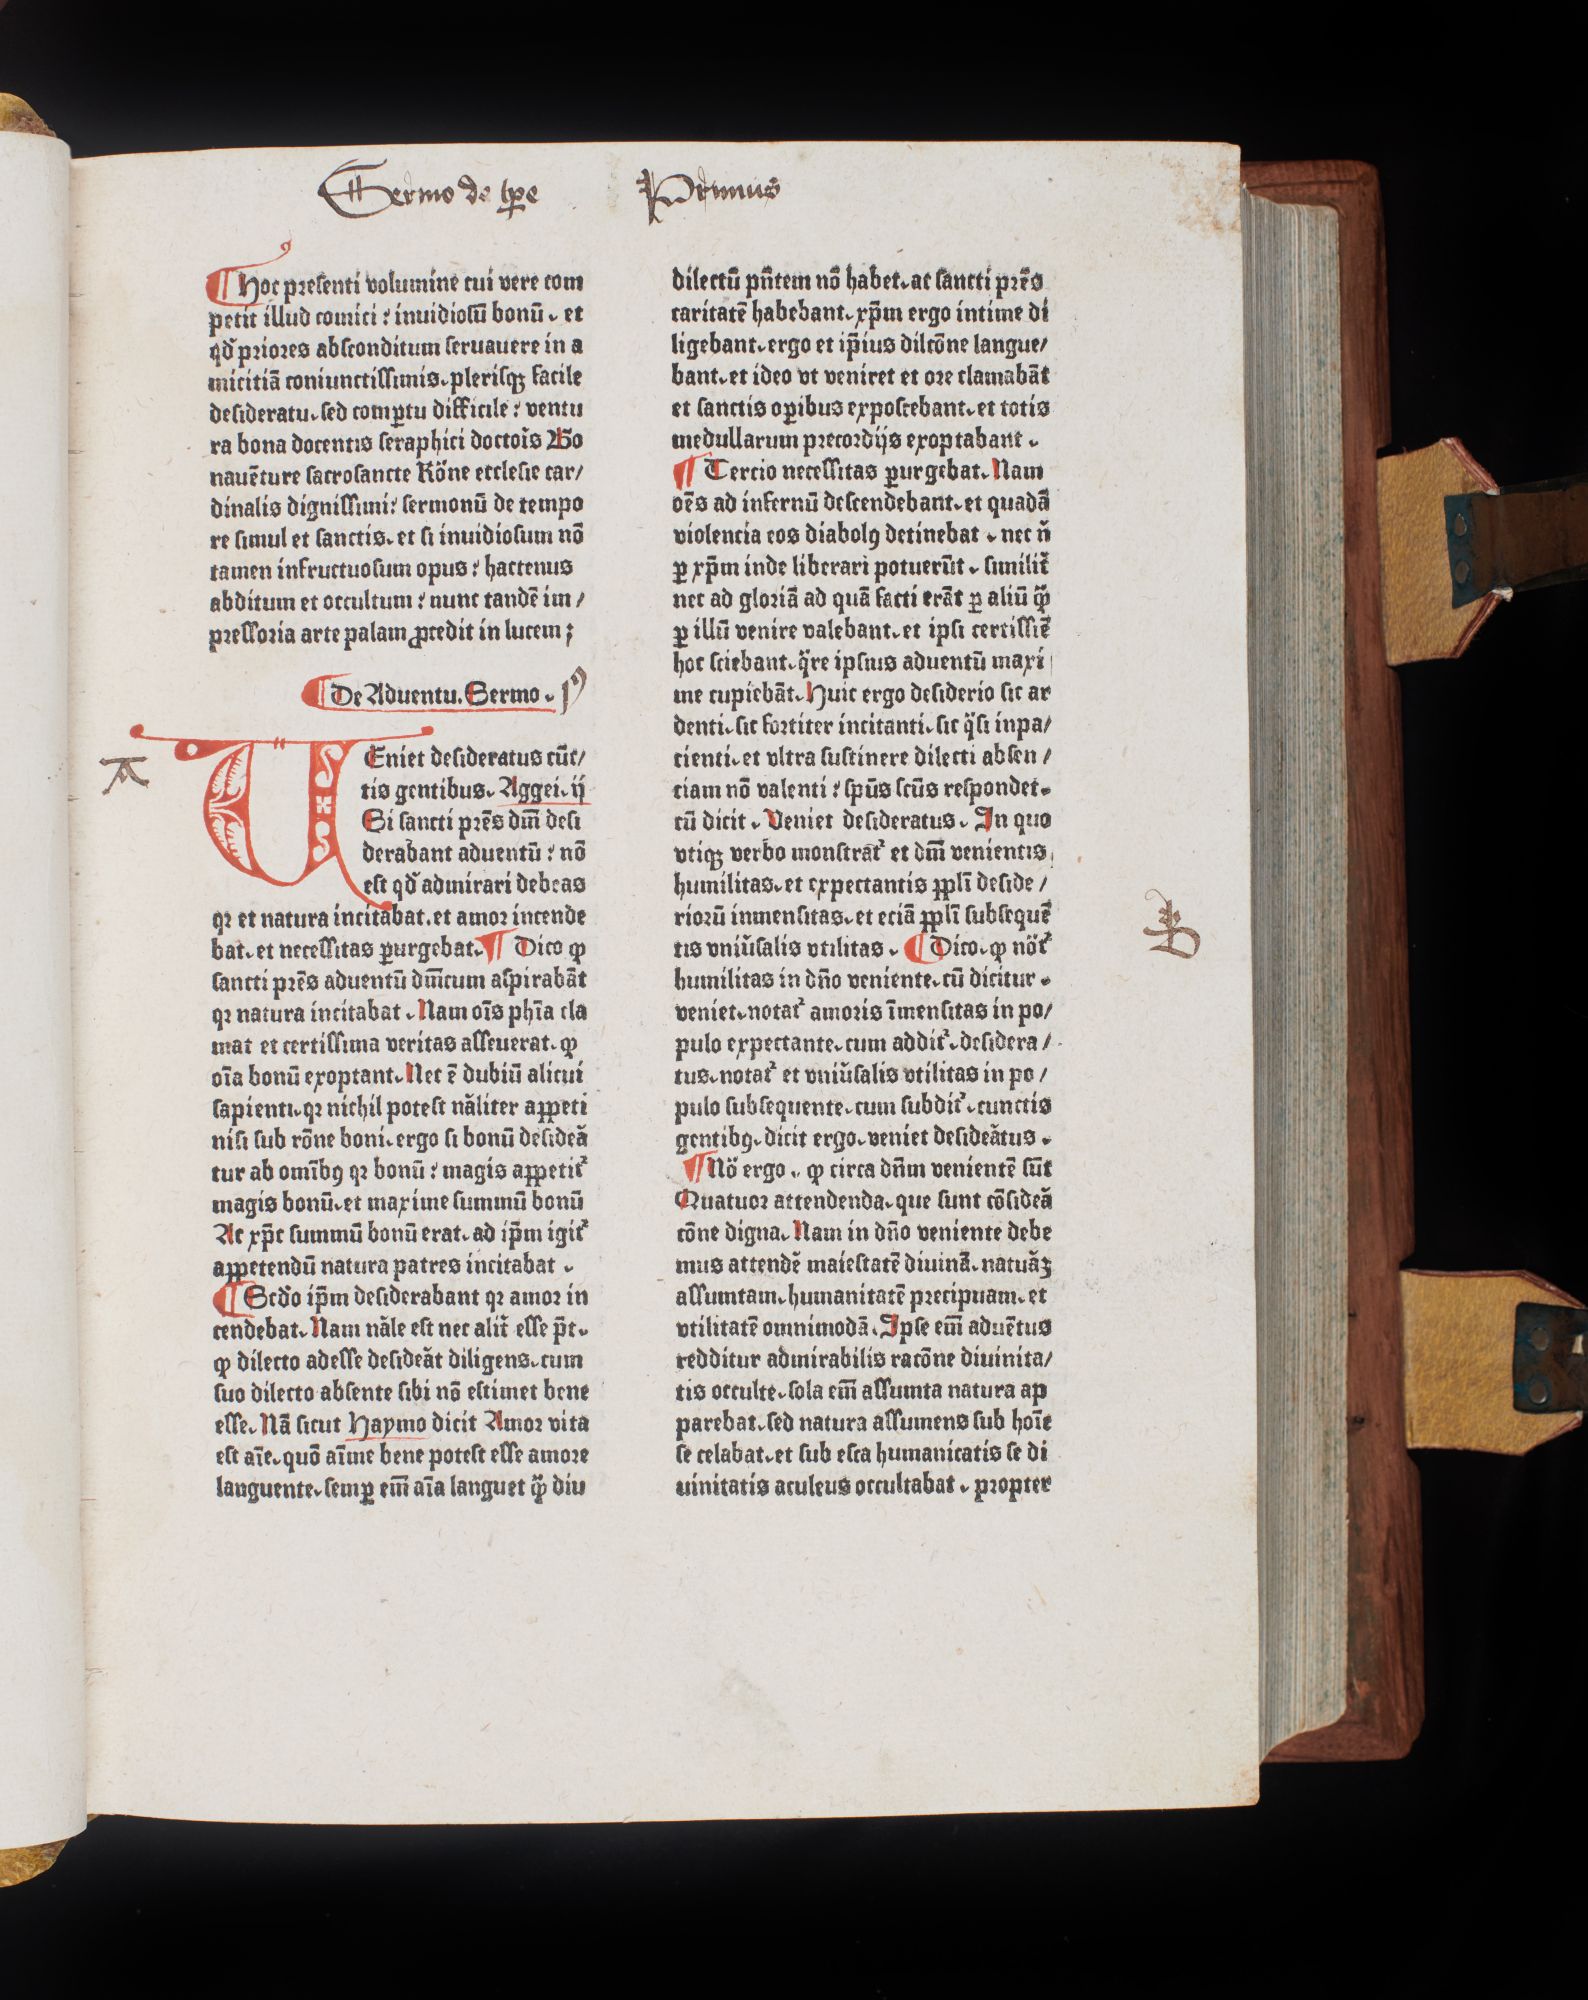 Sermo de tpe Primus
Hoc presenti volumine cui vere com
petit illud comici: inuidiosū bonū. et
qđ priores absconditum seruauere in a
micitiā coniunctissimis. plerisqꝫ facile
desideratu. sed comꝑtu difficile: ventu
ra bona docentis seraphici doctoris Bo
nauēture sacrosancte Rōne ecclesie car/
dinalis dignissimi: sermonū de tempo
re simul et sanctis. et si inuidiosum nō
tamen infructuosum opus: hactenus
abditum et occultum: nunc tandē im/
pressoria arte palam ꝓcedit in lucem;
De Aduentu. Sermo. pͥ
A
UEniet desideratus cūc/
tis gentibus. Aggei. ij
Si sancti prēs dm̄ desi
derabant aduentū: nō
est qđ admirari debeas
qꝛ et natura incitabat. et amor incende
bat. et necessitas ꝑurgebat. Dico ꝙ
sancti prēs aduentū dm̄cum aspirabāt
qꝛ natura incitabat. Nam oīs phīa cla
mat et certissima veritas asseuerat. ꝙ
oīa bonū exoptant. Nec ē dubiū alicui
sapienti. qꝛ nichil potest nāliter appeti
nisi sub rōne boni. ergo si bonū desideā
tur ab omībꝯ qꝛ bonū: magis appetit᷑
magis bonū. et maxime summū bonū
At xp̄c summū bonū erat. ad ip̄m igit᷑
appetendū natura patres incitabat.
Scđo ip̄m desiderabant qꝛ amor in
cendebat. Nam nāle est nec alit̄ esse p̄t.
ꝙ dilecto adesse desideāt diligens. cum
suo dilecto absente sibi nō estimet bene
esse. Nā sicut Haymo dicit Amor vita
est aīe. quō aīme bene potest esse amore
languente. semꝑ em̄ aīa languet ꝙ̄ diu
dilectū pn̄tem nō habet. at sancti prēs
caritatē habebant. xp̄m ergo intime di
ligebant. ergo et ip̄ius dilcōne langue/
bant. et ideo vt veniret et ore clamabāt
et sanctis oꝑibus exposcebant. et totis
medullarum precordijs exoptabant.
Tercio necessitas ꝑurgebat. Nam
oēs ad infernū descendebant. et quadā
violencia eos diabolꝯ detinebat. nec n̄
ꝑ xp̄m inde liberari potuerūt. similit̄
nec ad gloriā ad quā facti erāt ꝑ aliū ꝙ̄
ꝑ illū venire valebant. et ipsi certissiē
hoc sciebant. q̄re ipsius aduentū maxi
me cupiebāt. Huic ergo desiderio sic ar
denti. sic fortiter incitanti. sic q̄si inpa/
cienti. et vltra sustinere dilecti absen/
ciam nō valenti: spūs scūs respondet.
cū dicit. Veniet desideratus. In quo
vtiqꝫ verbo monstrat᷑ et dm̄ venientis
humilitas. et expectantis ppl̄i deside/
riorū inmensitas. et eciā ppl̄i subsequē
tis vniūsalis vtilitas. Dico. ꝙ nōt᷑
B
humilitas in dn̄o veniente. cū dicitur.
veniet. notat᷑ amoris īmensitas in po/
pulo expectante. cum addit᷑. desidera/
tus. notat᷑ et vniūsalis vtilitas in po/
pulo subsequente. cum subdit᷑. cunctis
gentibꝯ. dicit ergo. veniet desideātus.
Nō ergo. ꝙ circa dn̄m venientē sūt
Quatuor attendenda. que sunt cōsideā
cōne digna. Nam in dn̄o veniente debe
mus attendē maiestatē diuinā. natuāꝫ
assumtam. humanitatē precipuam. et
vtilitatē omnimodā. Ipse em̄ aduētus
redditur admirabilis racōne diuinita/
tis occulte. sola em̄ assumta natura ap
parebat. sed natura assumens sub hoīe
se celabat. et sub esca humanitatis se di
uinitatis aculeus occultabat. propter